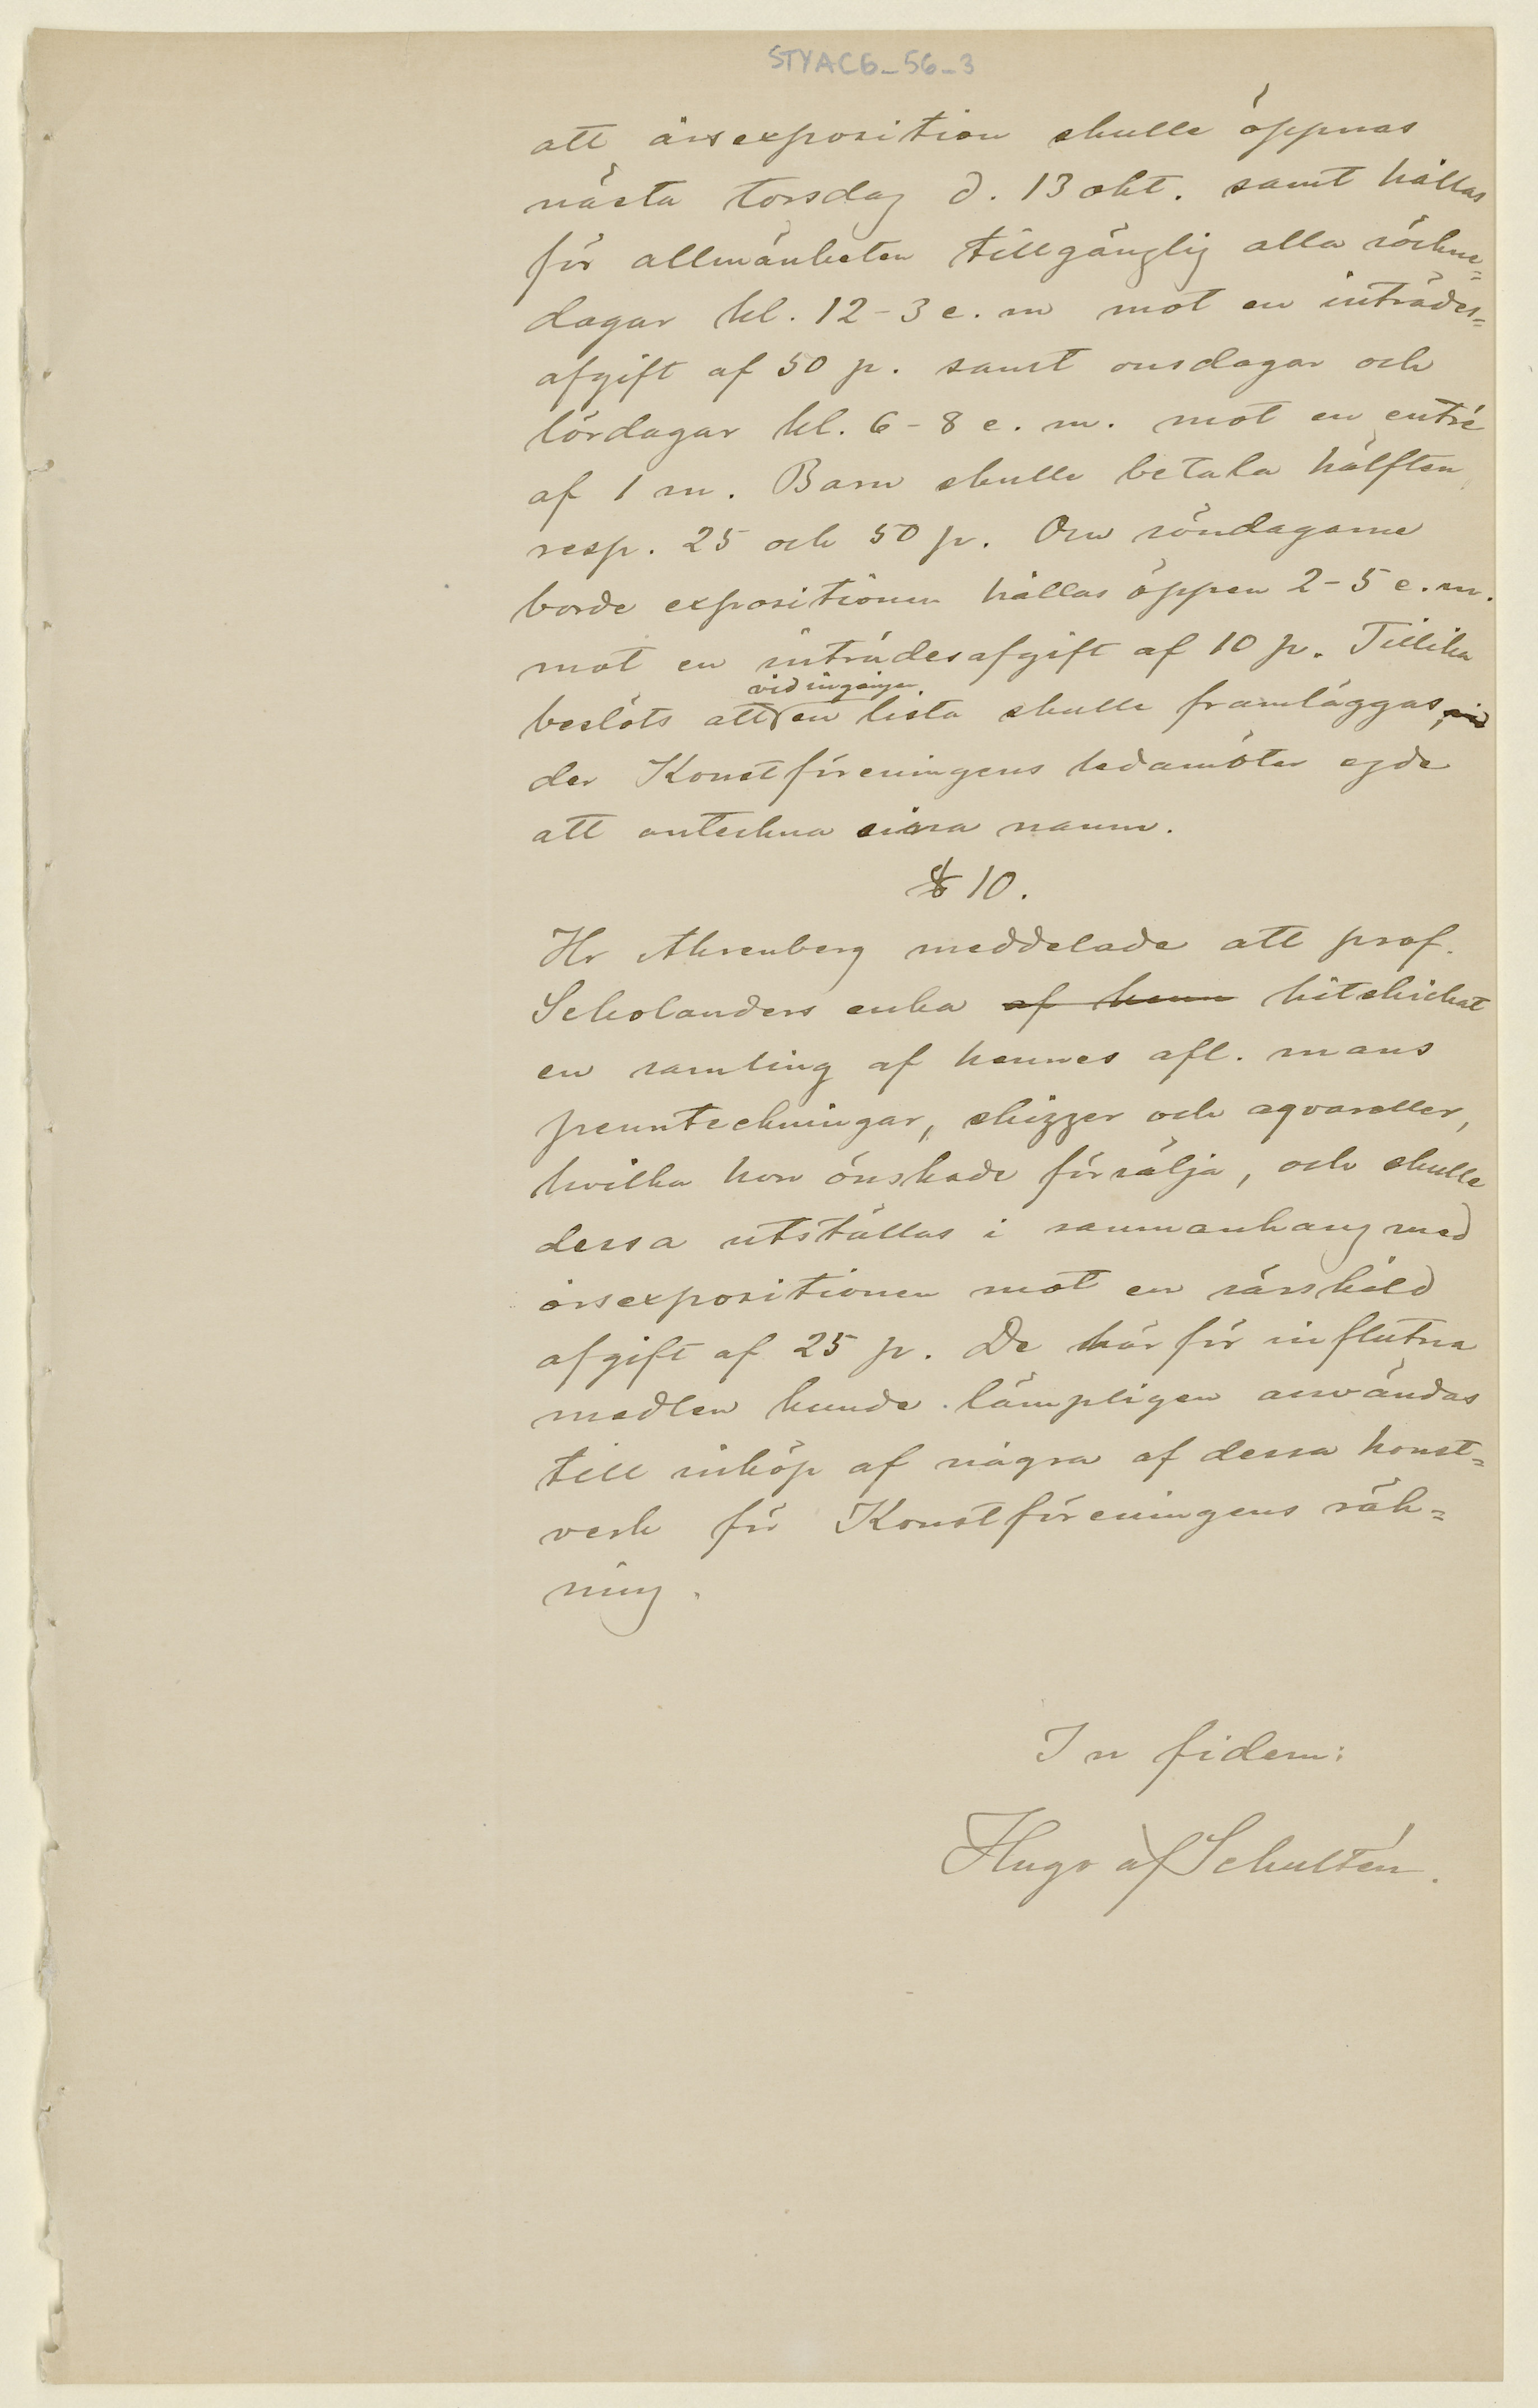 STYAC6_56_3
att årsexposition skulle öppnas
nästa torsdag d. 13 okt. samt hållas
för allmänheten tillgänglig alla söckne=
dagar kl. 12-3 e. m mot en inträdes=
afgift af 50 p. samt onsdagar och
lördagar kl. 6-8 e. m. mot en entré
af 1 m. Barn skulle betala hälften,
resp. 25 och 50 p. Om söndagarne
borde expositionen hållas öppen 2-5 e. m.
mot en inträdesafgift af 10 p. Tillika
vid ingången
beslöts att en lista skulle framläggas, vid
der Konstföreningens ledamöter egde
att anteckna sina namn.
§ 10.
Hr Ahrenberg meddelade att prof.
Scholanders enka af henne hitskickat
en samling af hennes afl. mans
penntechningar, skizzer och aqvareller,
hvilka hon önskade försälja, och skulle
dessa utställas i sammanhang med
årsexpositionen mot en särskild
afgift af 25 p. De härför influtna
medlen kunde lämpligen användas
till inköp af några af dessa konst=
verk för Konstföreningens räk=
ning.
In fidem:
Hugo af Schultén.